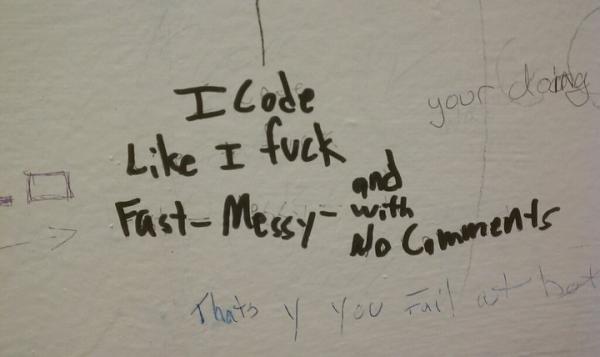 I Code
Like I fuck
Fast- Messy- and with No Comments
your doing
Thats y you Fail at bot